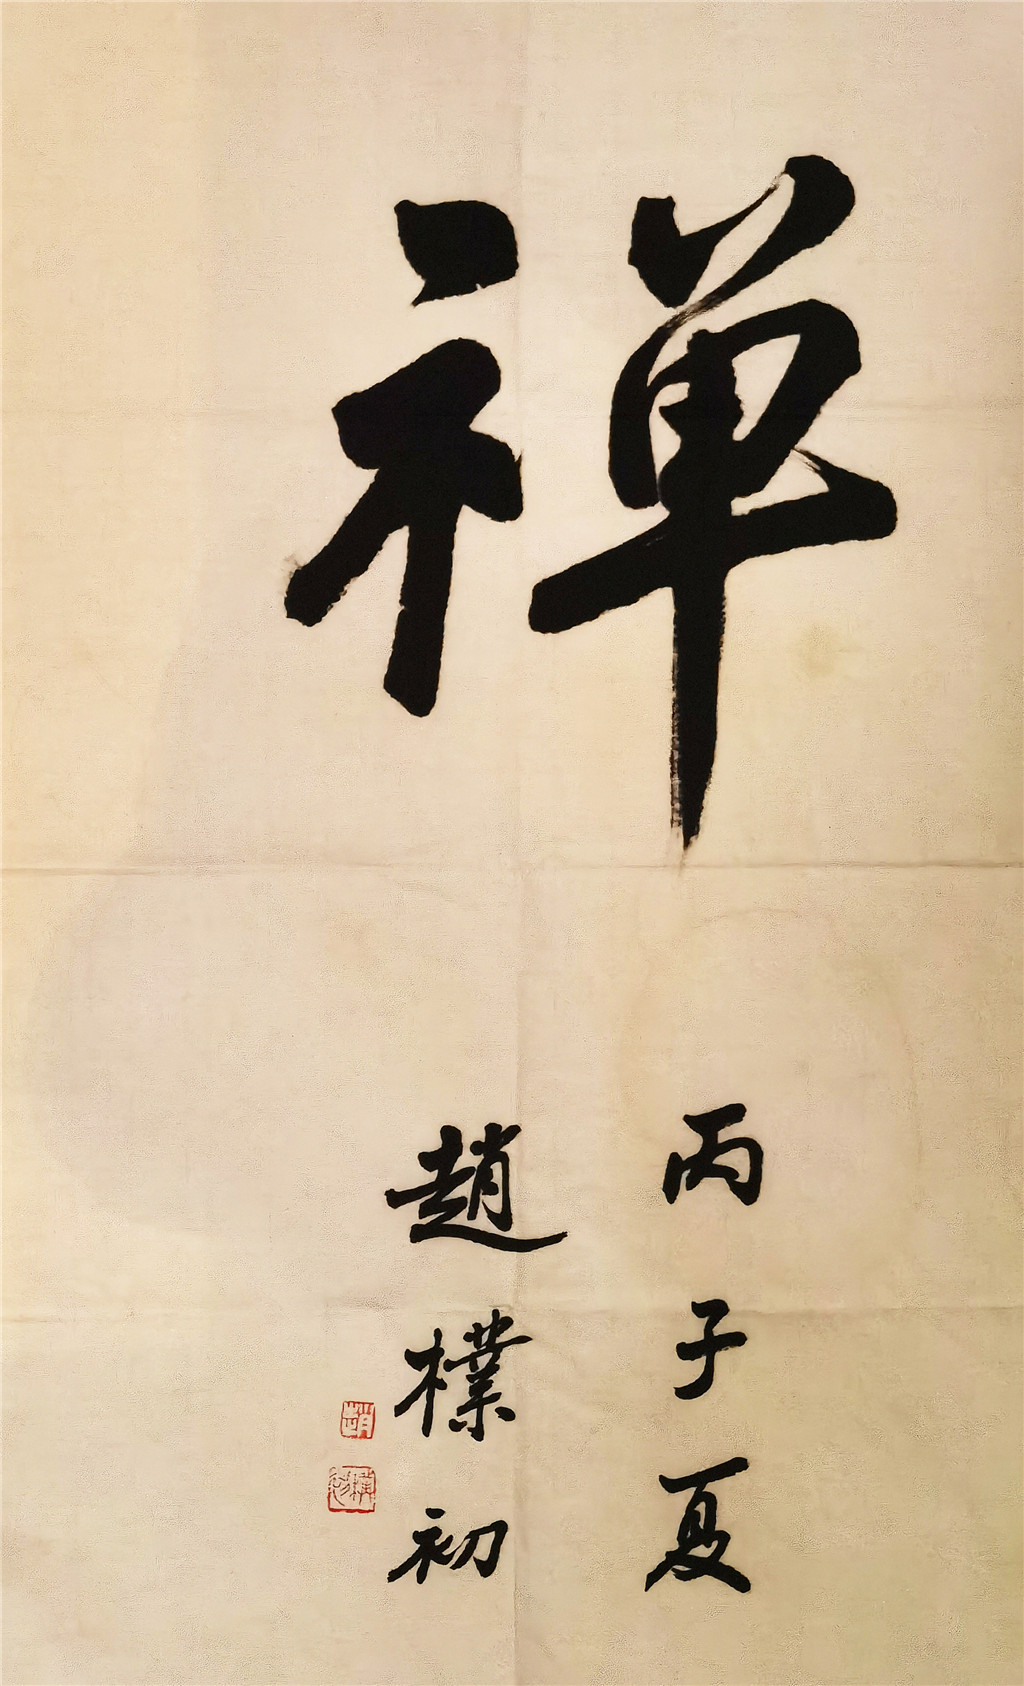 禅
丙子夏
趙樸初
趙
樸初